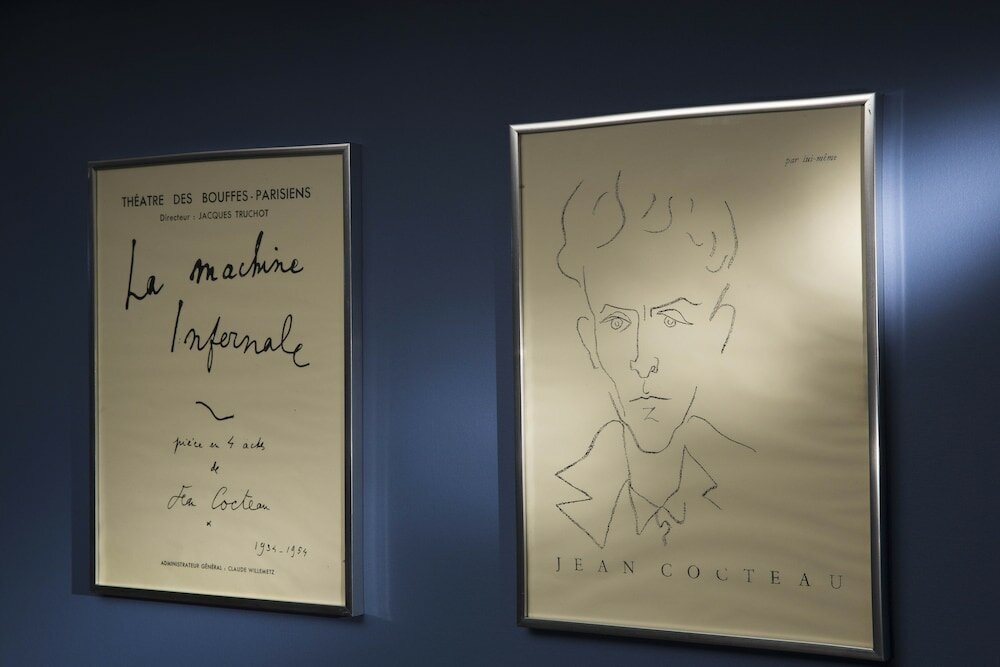 THÉATRE DES BOUFFES-PARISIENS
Directeur : JACQUES TRUCHOT
La machine
Infernale
pièce en 4 actes
de
Jean Cocteau
1934-1954
ADMINISTRATEUR GÉNÉRAL : CLAUDE WILLEMETZ
par lui-même
JEAN COCTEAU